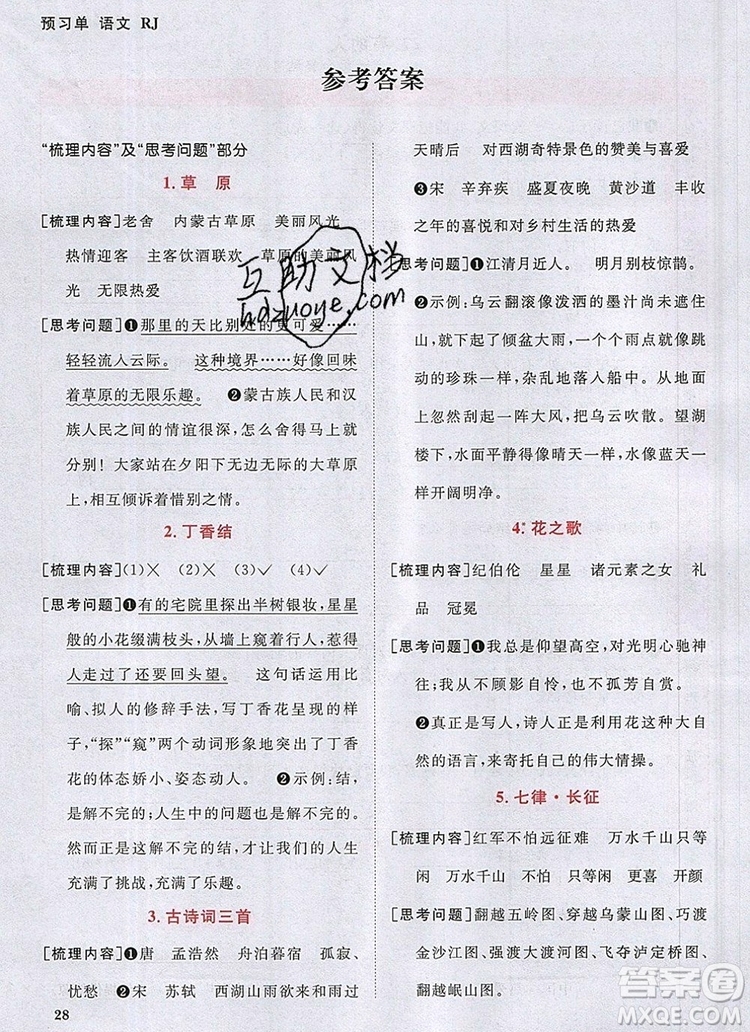 预习单 语文 RJ
参考答案
“梳理内容”及“思考问题”部分
1. 草 原
[梳理内容]老舍 内蒙古草原 美丽风光
热情迎客 主客饮酒联欢 草原的美丽风
光 无限热爱
[思考问题]❶那里的天比别处的更可爱……
轻轻流入云际。 这种境界……好像回味
着草原的无限乐趣。 ❷蒙古族人民和汉
族人民之间的情谊很深,怎么舍得马上就
分别!大家站在夕阳下无边无际的大草原
上,相互倾诉着惜别之情。
2. 丁香结
[梳理内容](1)× (2)× (3)✓ (4)✓
[思考问题]❶有的宅院里探出半树银妆,星星
般的小花缀满枝头,从墙上窥着行人,惹得
人走过了还要回头望。 这句话运用了比
喻、拟人的修辞手法,写丁香花呈现的样
子,“探”“窥”两个动词形象地写出了丁香
花的体态娇小、姿态动人。 ❷示例:结,
是解不完的;人生中的问题也是解不完的,
不然,岂不太平淡无味了吗?所以人生才
充满了挑战,充满了乐趣。
3. 古诗词三首
[梳理内容]❶唐 孟浩然 舟泊暮宿 孤寂、
忧愁 ❷宋 苏轼 西湖山雨欲来和雨过
28
天晴后 对西湖奇特景色的赞美与喜爱
❸宋 辛弃疾 盛夏夜晚 黄沙道 丰收
之年的喜悦和对乡村生活的热爱
[思考问题]❶江清月近人。 明月别枝惊鹊。
❷示例:乌云翻滚像泼洒的墨汁尚未遮住
山,刹那间就下起了倾盆大雨,像一颗颗跳
动的珍珠一样,杂乱地落在船上。从地面
上忽然卷起一阵大风,把乌云吹散。望湖
楼下,水面平静得像晴天一样,蓝天绿水,
更显得开阔明净。
4.* 花之歌
[梳理内容]纪伯伦 星星 诸元素之女 礼
品 冠冕
[思考问题]❶我总是仰望高空,对光明心驰神
往;我从不顾影自怜,也不孤芳自赏。
❷真正是写人,诗人正是利用花以大自然
的语言,来寄托自己的伟大情操。
5. 七律·长征
[梳理内容]红军不怕远征难 万水千山只等
闲 闲 开颜 万水千山 更喜 开颜
[思考问题]翻越五岭图、穿越乌蒙山图、巧渡
金沙江图、强渡大渡河图、飞夺泸定桥图、
翻越岷山图。
互助文档
hdzuoye.com
答案圈
MXQE.COM